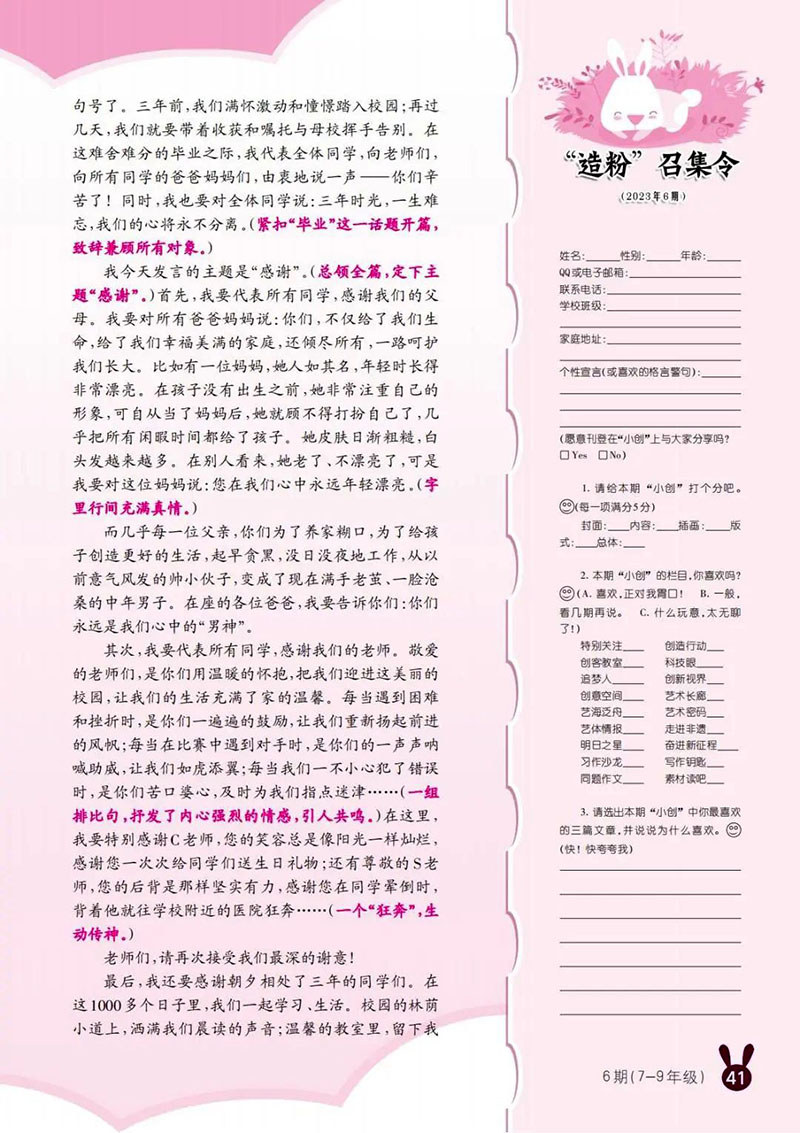 句号了。三年前,我们满怀激动和憧憬踏入校园;再过
几天,我们就要带着收获和嘱托与母校挥手告别。在
这难舍难分的毕业之际,我代表全体同学,向老师们,
向所有同学的爸爸妈妈们,由衷地说一声——你们辛
苦了!同时,我也要对全体同学说:三年时光,一生难
忘,我们的心将永不分离。(紧扣“毕业”这一话题开篇,
致辞兼顾所有对象。)
我今天发言的主题是“感谢”。(总领全篇,定下主
题“感谢”。)首先,我要代表所有同学,感谢我们的父
母。我要对所有爸爸妈妈说:你们,不仅给了我们生
命,给了我们幸福美满的家庭,还倾尽所有,一路呵护
我们长大。比如有一位妈妈,她人如其名,年轻时长得
非常漂亮。在孩子没有出生之前,她非常注重自己的
形象,可自从当了妈妈后,她就顾不得打扮自己了,几
乎把所有闲暇时间都给了孩子。她皮肤日渐粗糙,白
头发越来越多。在别人看来,她老了、不漂亮了,可是
我要对这位妈妈说:您在我们心中永远年轻漂亮。(字
里行间充满真情。)
而几乎每一位父亲,你们为了养家糊口,为了给孩
子创造更好的生活,起早贪黑,没日没夜地工作,从以
前意气风发的帅小伙子,变成了现在满手老茧、一脸沧
桑的中年男子。在座的各位爸爸,我要告诉你们:你们
永远是我们心中的“男神”。
其次,我要代表所有同学,感谢我们的老师。敬爱
的老师们,是你们用温暖的怀抱,把我们迎进这美丽的
校园,让我们的生活充满了家的温馨。每当遇到困难
和挫折时,是你们一遍遍的鼓励,让我们重新扬起前进
的风帆;每当在比赛中遇到对手时,是你们的一声声呐
喊助威,让我们如虎添翼;每当我们一不小心犯了错误
时,是你们苦口婆心,及时为我们指点迷津……(一组
排比句,抒发了内心强烈的情感,引人共鸣。)在这里,
我要特别感谢C老师,您的笑容总是像阳光一样灿烂,
感谢您一次次给同学们送生日礼物;还有尊敬的S老
师,您的后背是那样坚实有力,感谢您在同学晕倒时,
背着他就往学校附近的医院狂奔……(一个“狂奔”,生
动传神。)
老师们,请再次接受我们最深的谢意!
最后,我还要感谢朝夕相处了三年的同学们。在
这1000多个日子里,我们一起学习、生活。校园的林荫
小道上,洒满我们晨读的声音;温馨的教室里,留下我
“造粉”召集令
(2023年6期)
姓名:______性别:______年龄:______
QQ或电子邮箱:
联系电话:
学校班级:
家庭地址:
个性宣言(或喜欢的格言警句):
(愿意刊登在“小创”上与大家分享吗?
□Yes □No)
1. 请给本期“小创”打个分吧。
(每一项满分5分)
封面:___内容:___插画:___版
式:___总体:___
2. 本期“小创”的栏目,你喜欢吗?
(A. 喜欢,正对我胃口! B. 一般,
看几期再说。 C. 什么玩意,太无聊
了!)
特别关注___ 创造行动___
创客教室___ 科技眼___
追梦人___ 创新视界___
创意空间___ 艺术长廊___
艺海泛舟___ 艺术密码___
艺体情报___ 走进非遗___
明日之星___ 奋进新征程___
习作沙龙___ 写作钥匙___
同题作文___ 素材读吧___
3. 请选出本期“小创”中你最喜欢
的三篇文章,并说说为什么喜欢。
(快!快夸夸我)
6期(7-9年级) 41